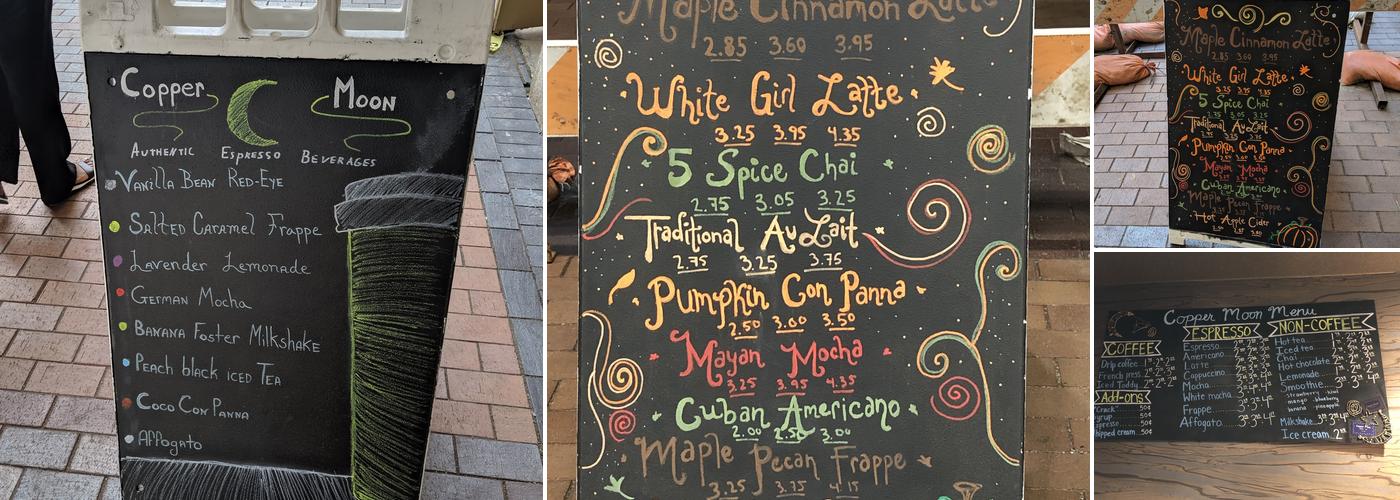 Copper Moon
Authentic Espresso Beverages
Vanilla Bean Red-Eye
Salted Caramel Frappe
Lavender Lemonade
German Mocha
Banana Foster Milkshake
Peach black iced Tea
Coco Con Panna
Affogato
Maple Cinnamon Latte
2.85 3.60 3.95
White Girl Latte
3.25 3.95 4.35
5 Spice Chai
2.75 3.05 3.25
Traditional Au Lait
2.75 3.25 3.75
Pumpkin Con Panna
2.50 3.00 3.50
Mayan Mocha
3.25 3.95 4.35
Cuban Americano
2.00 2.50 3.00
Maple Pecan Frappe
3.25 3.75 4.15
Maple Cinnamon Latte
2.85 3.60 3.95
White Girl Latte
3.25 3.95 4.35
5 Spice Chai
2.75 3.05 3.25
Traditional Au Lait
Pumpkin Con Panna
Mayan Mocha
Cuban Americano
Maple Pecan Frappe
Hot Apple Cider
Copper Moon Menu
COFFEE
Drip coffee
French press
Iced Toddy
Add-ons
"Crack" 50¢
50¢
50¢
whipped cream 50¢
ESPRESSO
Espresso
Americano
Latte
Cappuccino
Mocha
White mocha
Frappe
Affogato
NON-COFFEE
Hot tea
Iced tea
Chai
Hot chocolate
Lemonade
Smoothie
strawberry
mango blueberry
banana pineapple
Milkshake
Ice cream